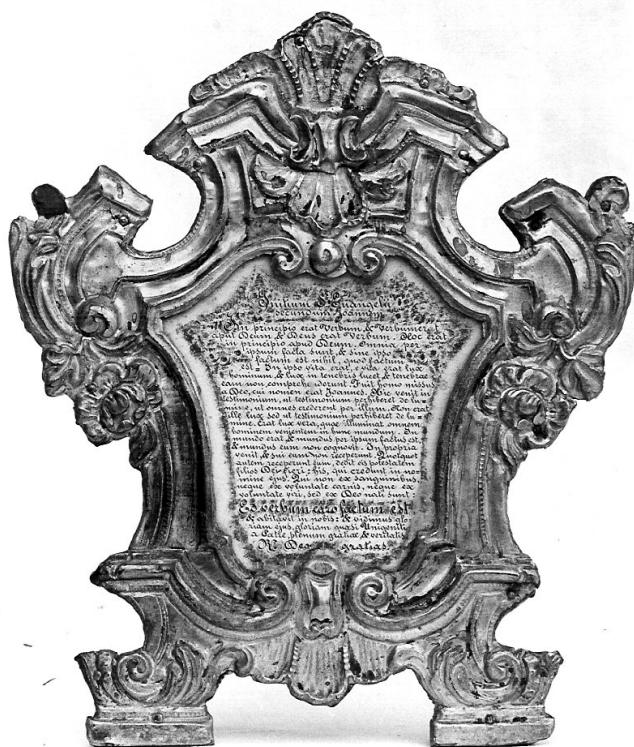 Initium S. Evangelii
secundum Joannem
In principio erat Verbum, & Verbum erat
apud Deum, & Deus erat Verbum. Hoc erat
in principio apud Deum. Omnia per
ipsum facta sunt, & sine ipso
factum est nihil, quod factum
est. In ipso vita erat, & vita erat lux
hominum, & lux in tenebris lucet, & tenebrae
eam non comprehenderunt. Fuit homo missus
a Deo, cui nomen erat Joannes. Hic venit in
testimonium, ut testimonium perhiberet de lu=
mine, ut omnes crederent per illum. Non erat
ille lux sed ut testimonium perhiberet de lu=
mine. Erat lux vera, quae illuminat omnem
hominem venientem in hunc mundum. In
mundo erat, & mundus per ipsum factus est,
& mundus eum non cognovit. In propria
venit, & sui eum non receperunt. Quotquot
autem receperunt eum, dedit eis potestatem
filios Dei fieri; his, qui credunt in no=
mine ejus. Qui non ex sanguinibus,
neque ex voluntate carnis, neque ex
voluntate viri, sed ex Deo nati sunt:
Et verbum caro factum est
& abitavit in nobis: & vidimus glo=
riam ejus, gloriam quasi Unigeniti
a Patre, plenum gratiae, & veritatis
R. Deo gratias.